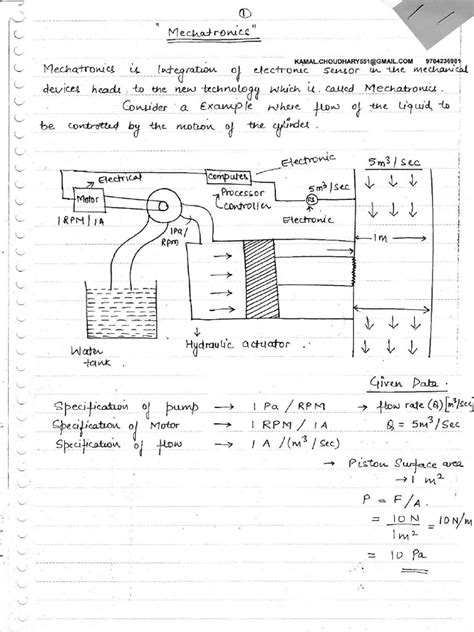 ①
"Mechatronics"
KAMAL.CHOUDHARY551@GMAIL.COM 9784236981
Mechatronics is Integration of electronic sensor in the mechanical
devices heads to the new technology which is called Mechatronics.
Consider a Example where flow of the liquid to
be controlled by the motion of the cylinder.
Electronic
5 m³/sec
Electrical
Computer
Motor
Processor
Controller
5 m³/sec
1 RPM / 1A
1Pa/
Rpm
Electronic
1m
Water
tank.
Hydraulic actuator
Given Data.
Specification of pump → 1 Pa / RPM → flow rate (Q) [m³/sec]
Specification of Motor → 1 RPM / 1A Q = 5m³/sec
Specification of flow → 1 A / (m³/sec)
→ Piston Surface area
→ 1 m²
P = F/A.
= 10N/1m² = 10N/m
= 10 Pa